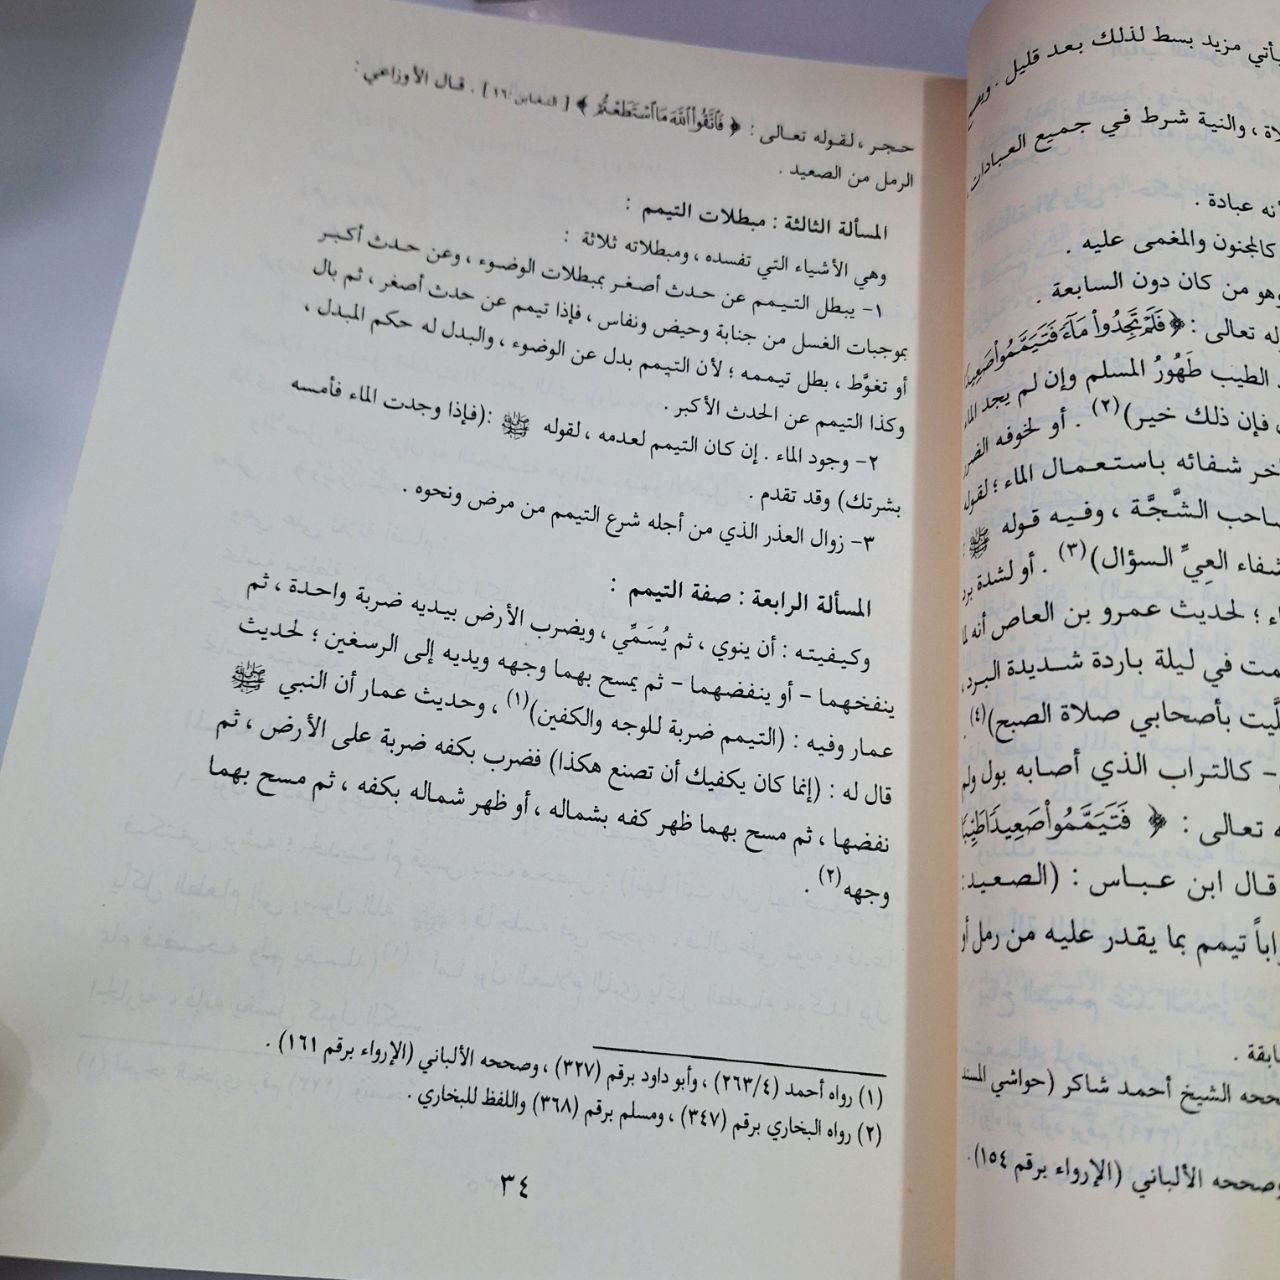 يأتي مزيد بسط لذلك بعد قليل .
والنية شرط في جميع العبادات
عبادة .
كالمجنون والمغمى عليه .
وهو من كان دون السابعة .
تعالى : ﴿ فَلَمْ تَجِدُوا۟ مَآءً فَتَيَمَّمُوا۟ صَعِيدًا
الطيب طَهُورُ المسلم وإن لم يجد الماء
فإن ذلك خير)(٢) . أو لخوفه الضرر
شفائه باستعمال الماء ؛ لقوله
صاحب الشَّجَّة ، وفيه قوله ﷺ
شفاء العِيِّ السؤال)(٣) . أو لشدة برد
؛ لحديث عمرو بن العاص أنه لما
في ليلة باردة شديدة البرد ،
بأصحابي صلاة الصبح)(٤) .
- كالتراب الذي أصابه بول ولم
تعالى : ﴿ فَتَيَمَّمُوا۟ صَعِيدًا طَيِّبًا
قال ابن عباس : (الصعيد :
تيمم بما يقدر عليه من رمل أو
.
الشيخ أحمد شاكر (حواشي المسند
وصححه الألباني (الإرواء برقم ١٥٤) .
حجر ، لقوله تعالى : ﴿ فَٱتَّقُوا۟ ٱللَّهَ مَا ٱسْتَطَعْتُمْ ﴾ [ التغابن: ١٦ ] . قال الأوزاعي :
الرمل من الصعيد .
المسألة الثالثة : مبطلات التيمم :
وهي الأشياء التي تفسده ، ومبطلاته ثلاثة :
١- يبطل التيمم عن حدث أصغر بمبطلات الوضوء ، وعن حدث أكبر
بموجبات الغسل من جنابة وحيض ونفاس ، فإذا تيمم عن حدث أصغر ، ثم بال
أو تغوَّط ، بطل تيممه ؛ لأن التيمم بدل عن الوضوء ، والبدل له حكم المبدل ،
وكذا التيمم عن الحدث الأكبر .
٢- وجود الماء . إن كان التيمم لعدمه ، لقوله ﷺ :(فإذا وجدت الماء فأمسه
بشرتك) وقد تقدم .
٣- زوال العذر الذي من أجله شرع التيمم من مرض ونحوه .
المسألة الرابعة : صفة التيمم :
وكيفيته : أن ينوي ، ثم يُسَمِّي ، ويضرب الأرض بيديه ضربة واحدة ، ثم
ينفخهما - أو ينفضهما - ثم يمسح بهما وجهه ويديه إلى الرسغين ؛ لحديث
عمار وفيه : (التيمم ضربة للوجه والكفين)(١) ، وحديث عمار أن النبي ﷺ
قال له : (إنما كان يكفيك أن تصنع هكذا) فضرب بكفه ضربة على الأرض ، ثم
نفضها ، ثم مسح بهما ظهر كفه بشماله ، أو ظهر شماله بكفه ، ثم مسح بهما
وجهه(٢) .
(١) رواه أحمد (٢٦٣/٤) ، وأبو داود برقم (٣٢٧) ، وصححه الألباني (الإرواء برقم ١٦١) .
(٢) رواه البخاري برقم (٣٤٧) ، ومسلم برقم (٣٦٨) واللفظ للبخاري .
٣٤